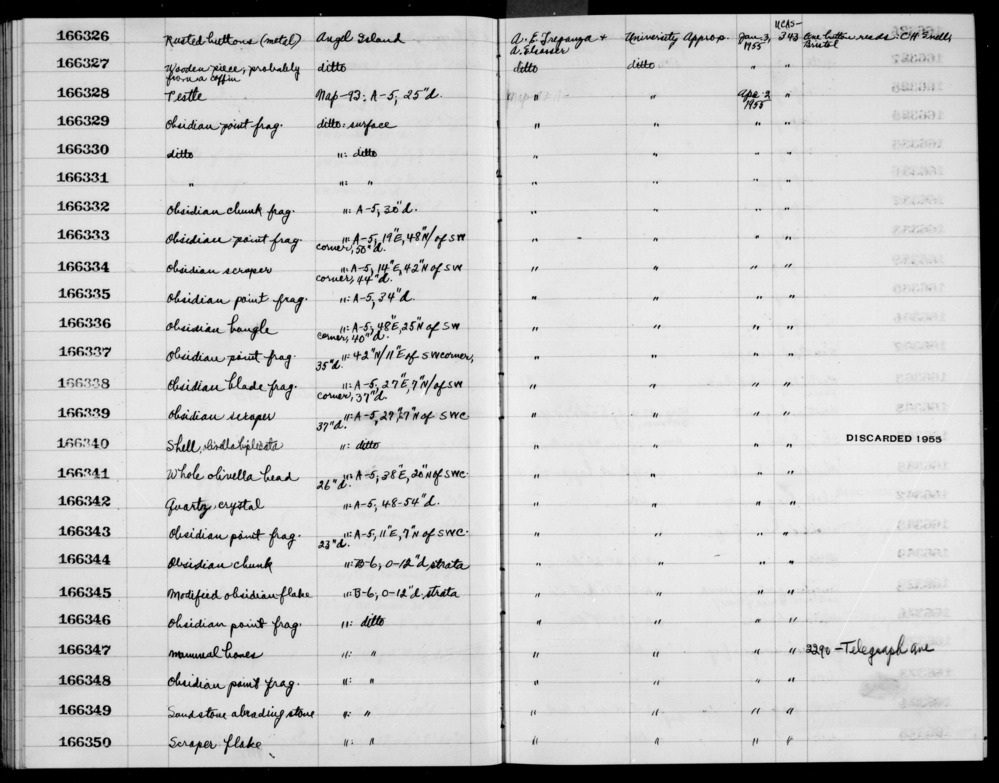 UCAS-
166326 Rusted buttons (metal) Angel Island A. E. Treganza + University Approp. Jan. 3, 343 One button reads: C H
A. Elsasser 1955 Bristol
166327 Wooden piece, probably ditto ditto ditto " "
from a coffin
166328 Pestle Nap-93: A-5, 25"d. " " Apr. 2 "
1955
166329 Obsidian point frag. ditto: surface " " " "
166330 ditto ": ditto " " " "
166331 " ": " " " " "
166332 Obsidian chunk frag. ": A-5, 30"d. " " " "
166333 Obsidian point frag. ": A-5, 19"E, 48"N/of SW " " " "
corner, 50"d.
166334 Obsidian scraper ": A-5, 14"E, 42"N of SW " " " "
corner, 44"d.
166335 Obsidian point frag. ": A-5, 34"d. " " " "
166336 Obsidian bangle ": A-5, 48"E, 25"N of SW " " " "
corner, 40"d.
166337 Obsidian point frag. ": 42"N/11"E of SW corner, " " " "
35"d.
166338 Obsidian blade frag. ": A-5, 27"E, 7"N/of SW " " " "
corner, 37"d.
166339 Obsidian scraper ": A-5, 27"E, 7"N of SWC " " " "
37"d.
166340 Shell, olivella biplicata ": ditto " " " " DISCARDED 1955
166341 Whole olivella bead ": A-5, 38"E, 20"N of SWC. " " " "
26"d.
166342 Quartz crystal ": A-5, 48-54"d. " " " "
166343 Obsidian point frag. ": A-5, 11"E, 7"N of SWC. " " " "
23"d.
166344 Obsidian chunk ": B-6, 0-12"d, strata " " " "
166345 Modified obsidian flake ": B-6, 0-12"d, strata " " " "
166346 Obsidian point frag. ": ditto " " " "
166347 Mammal bones ": " " " " " 2290 - Telegraph Ave
166348 Obsidian point frag. ": " " " " "
166349 Sandstone abrading stone ": " " " " "
166350 Scraper flake ": " " " " "